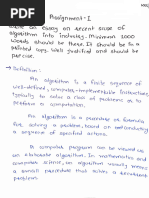 Assignment-I
Write an essay on recent usage of
algorithm into industry. Minimum 2000
words should be there. It should be in a
printed copy. Well justified and should be
precise.
→ Definition:
An algorithm is a finite sequence of
well-defined, computer-implementable instructions,
typically to solve a class of problems or to
perform a computation.
An algorithm is a procedure or formula
for solving a problem, based on conducting
a sequence of specified actions.
A computer program can be viewed
as an elaborate algorithm. In mathematics and
computer science, an algorithm usually means
a small procedure that solves a recurrent
problem.